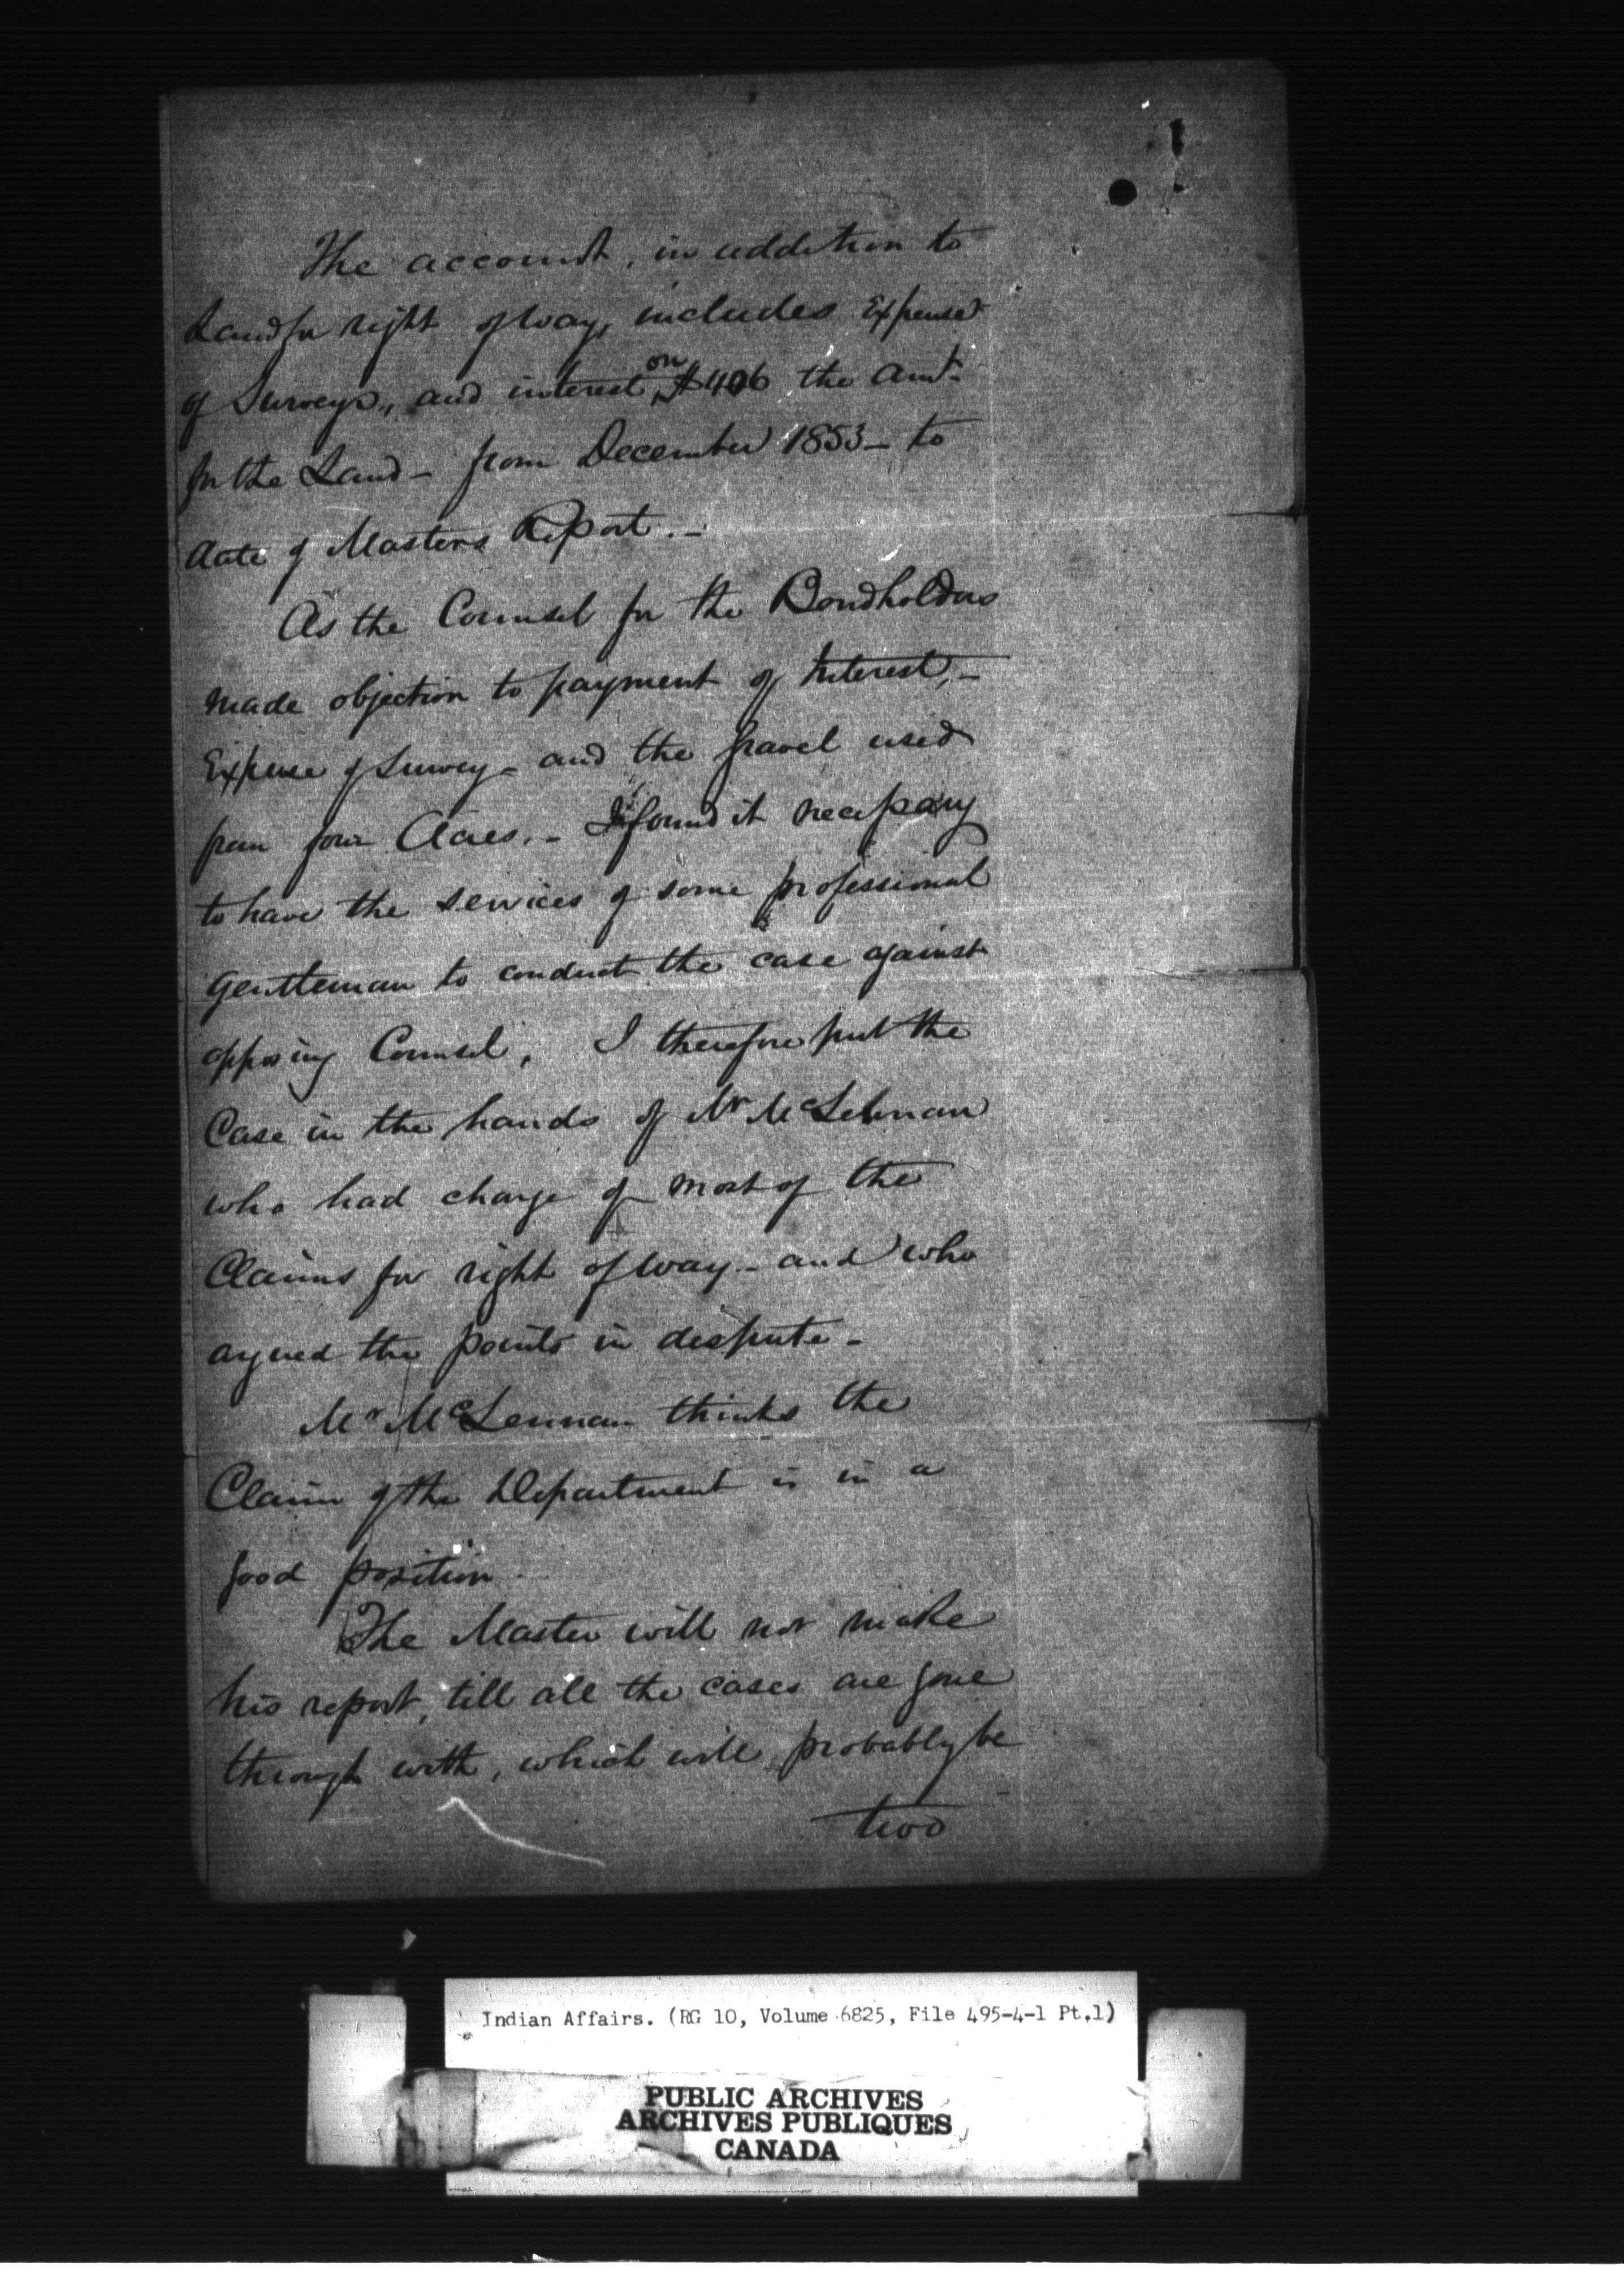 The account, in addition to
Land for right of way, includes Expense
of Surveys, and interest on $406 the amt.
for the Land - from December 1853 - to
date of Masters Report. -
As the Counsel for the Bondholders
made objection to payment of Interest, -
Expense of Survey - and the gravel used
from four Acres. - I found it necessary
to have the services of some professional
gentleman to conduct the case against
opposing Counsel, I therefore put the
Case in the hands of Mr McLennan
who had charge of most of the
Claims for right of way - and who
argued the points in dispute -
Mr McLennan thinks the
Claim of the Department is in a
good position
The Master will not make
his report, till all the cases are gone
through with, which will probably be
two
Indian Affairs. (RG 10, Volume 6825, File 495-4-1 Pt.1)
PUBLIC ARCHIVES
ARCHIVES PUBLIQUES
CANADA